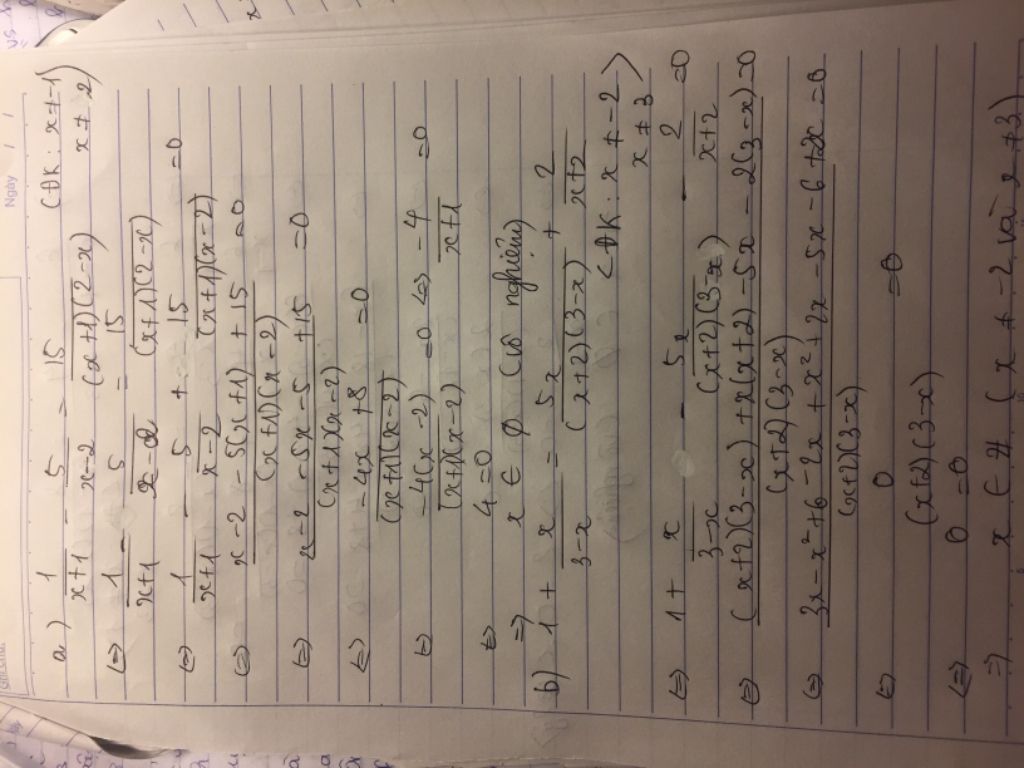 Ngày
a) 1/(x+1) - 5/(x-2) = 15/((x+1)(2-x)) (ĐK: x ≠ -1)
x ≠ 2)
(=) 1/(x+1) - 5/(x-2) = 15/((x+1)(2-x))
(=) 1/(x+1) - 5/(x-2) + 15/((x+1)(x-2)) = 0
(=) (x-2-5(x+1)+15)/((x+1)(x-2)) = 0
(=) (x-2-5x-5+15)/((x+1)(x-2)) = 0
(=) (-4x+8)/((x+1)(x-2)) = 0
(=) (-4(x-2))/((x+1)(x-2)) = 0 (=) -4/(x+1) = 0
(=) 4=0
=) x ∈ ∅ (vô nghiệm)
b) 1 + x/(3-x) = 5x/((x+2)(3-x)) + 2/(x+2)
<ĐK: x ≠ -2
x ≠ 3 >
(=) 1 + x/(3-x) - 5x/((x+2)(3-x)) - 2/(x+2) = 0
(=) ((x+2)(3-x)+x(x+2)-5x-2(3-x))/((x+2)(3-x)) = 0
(=) (3x-x²+6-2x+x²+2x-5x-6+2x)/((x+2)(3-x)) = 0
(=) 0/((x+2)(3-x)) = 0
(=) 0=0
=) x ∈ (x ≠ -2 và x ≠ 3)